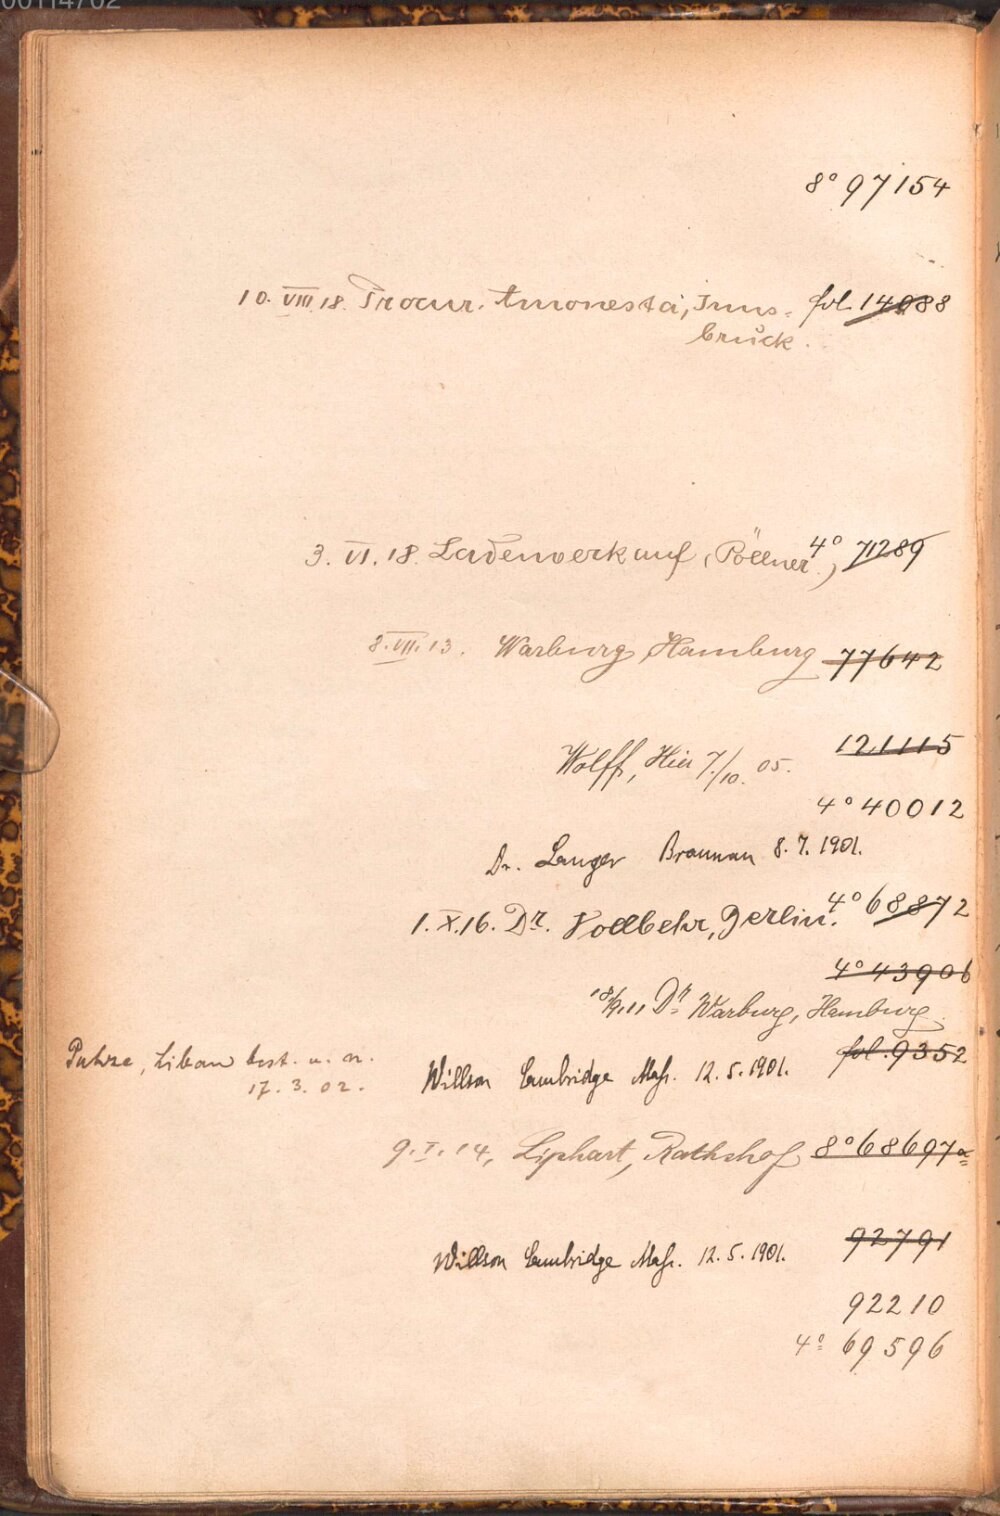 00114702
8° 97154
10. VIII 18. Procur. Amonesta, Inns- fol. 14088
bruck.
3. VI. 18. Ladenverkauf (Pöllner) 4° 71289
8. VII. 13. Warburg Hamburg 77642
121115
Wolff, Hier 7./10. 05.
4° 40012
Dr. Langer Braunau 8. 7. 1901.
1. X. 16. Dr. Vollbehr, Berlin. 4° 68872
4° 43906
18/9. 11 Dr Warburg, Hamburg
fol. 9352
Libau best. u. n.
Willson Cambridge Mass. 12. 5. 1901.
17. 3. 02.
9. I. 14, Liphart, Rathshof 8° 68697a
92791
Willson Cambridge Mass. 12. 5. 1901.
92210
4° 69596